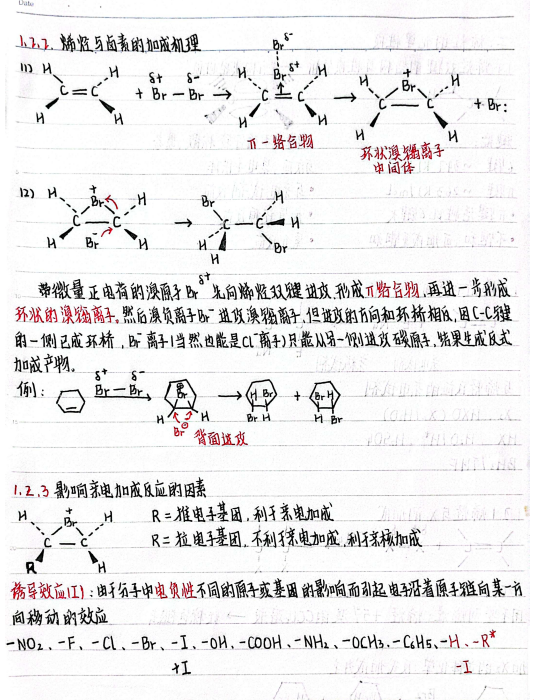 1.2.2. 烯烃与卤素的加成机理
(1) H H C=C H H + Br — Br δ+ δ- → Br δ- Br δ+ H H C=C H H → + Br H H C — C H H + Br:
π-络合物 环状溴鎓离子
中间体
(2) H + Br H C — C H H Br- → Br H C — C H H H Br
带微量正电荷的溴原子Brδ+先向烯烃双键进攻,形成π络合物,再进一步形成
环状的溴鎓离子。然后溴负离子Br-进攻溴鎓离子,但进攻的方向和环桥相反,因C-C键
的一侧已成环桥,Br-离子(当然也能是Cl-离子)只能从另一侧进攻碳原子,结果生成反式
加成产物。
例: δ+ δ- Br — Br → Br H H Br⊖ → H Br Br H + Br H H Br
背面进攻
1.2.3 影响亲电加成反应的因素
H + Br H C — C R H R=推电子基团,利于亲电加成
R=拉电子基团,不利于亲电加成,利于亲核加成
诱导效应(I):由于分子中电负性不同的原子或基团的影响而引起电子沿着原子链向某一方
向移动的效应
-NO2、-F、-Cl、-Br、-I、-OH、-COOH、-NH2、-OCH3、-C6H5、-H、-R*
+I -I